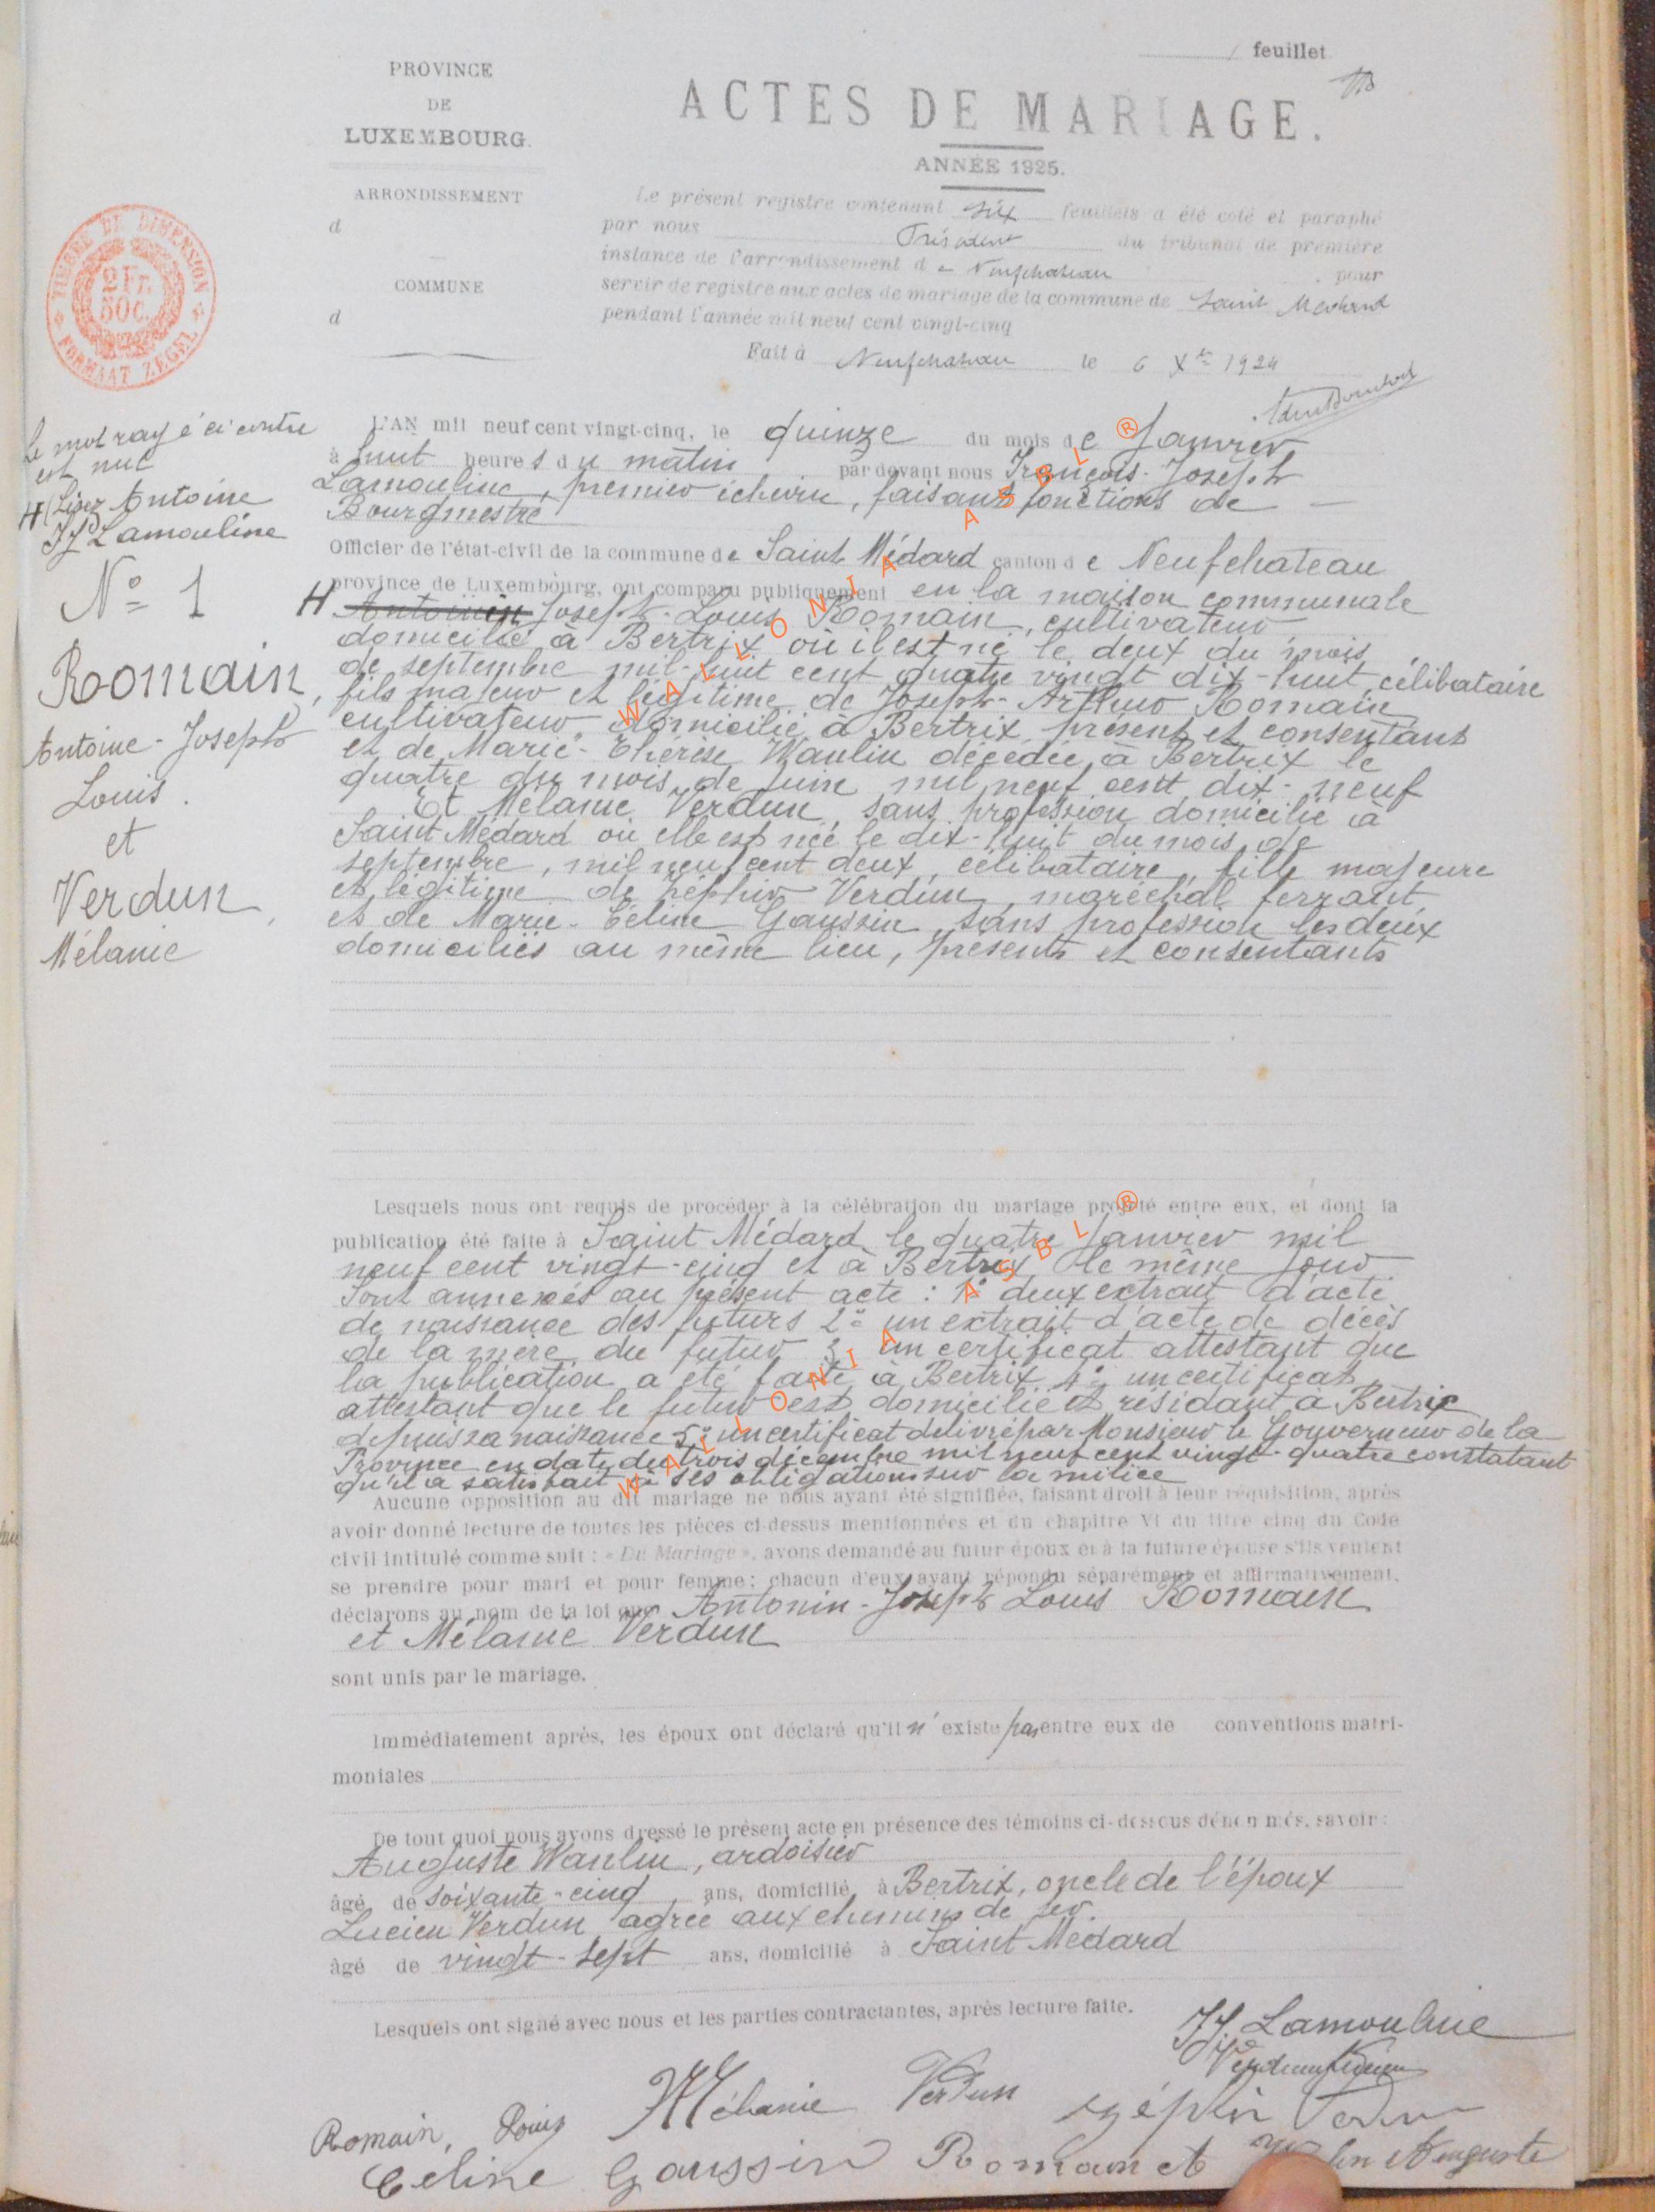 feuillet
PROVINCE
DE
LUXEMBOURG.
ACTES DE MARIAGE.
ANNÉE 1925.
ARRONDISSEMENT
d
COMMUNE
d
TIMBRE DE DIMENSION
2 Fr.
50 C.
FORMAAT ZEGEL
Le présent registre contenant six feuillets a été coté et paraphé
par nous Président du tribunal de première
instance de l'arrondissement de Neufchateau pour
servir de registre aux actes de mariage de la commune de Saint Médard
pendant l'année mil neuf cent vingt-cinq
Fait à Neufchateau le 6 Xbre 1924
Le mot rayé ci contre
est nul
H (Lisez Antoine
JJ Lamouline
N° 1
Romain,
Antoine-Joseph
Louis.
et
Verdun,
Mélanie
L'AN mil neuf cent vingt-cinq, le quinze du mois de Janvier
à huit heures du matin par devant nous François-Joseph
Lamouline, premier échevin, faisant fonctions de
Bourgmestre
Officier de l'état-civil de la commune de Saint Médard canton de Neufchateau
province de Luxembourg, ont comparu publiquement en la maison communale
H Antonin Joseph-Louis Romain, cultivateur
domicilié à Bertrix où il est né le deux du mois
de septembre mil-huit cent quatre vingt dix-huit, célibataire
fils majeur et légitime de Joseph-Arthur Romain
cultivateur, domicilié à Bertrix présent et consentant
et de Marie-Thérèse Wanlin décédée à Bertrix le
quatre du mois de Juin mil neuf cent dix-neuf
Et Mélanie Verdun, sans profession domicilié à
Saint Médard où elle est née le dix-huit du mois de
septembre, mil neuf cent deux, célibataire, fille majeure
et légitime de Zéphir Verdun, maréchal ferrant
et de Marie-Céline Gaussin, sans profession les deux
domiciliés au même lieu, présents et consentants
Lesquels nous ont requis de procéder à la célébration du mariage projeté entre eux, et dont la
publication été faite à Saint Médard le quatre Janvier mil
neuf cent vingt-cinq et à Bertrix le même jour
Sont annexés au présent acte : 1° deux extrait d'acte
de naissance des futurs 2° un extrait d'acte de décès
de la mère du futur 3° un certificat attestant que
la publication a été faite à Bertrix 4° un certificat
attestant que le futur est domicilié et résidant à Bertrix
depuis sa naissance 5° un certificat délivré par Monsieur le Gouverneur de la
Province en date du trois décembre mil neuf cent vingt-quatre constatant
qu'il a satisfait à ses obligations sur la milice
Aucune opposition au dit mariage ne nous ayant été signifiée, faisant droit à leur réquisition, après
avoir donné lecture de toutes les pièces ci-dessus mentionnées et du chapitre VI du titre cinq du Code
civil intitulé comme suit : « Du Mariage », avons demandé au futur époux et à la future épouse s'ils veulent
se prendre pour mari et pour femme; chacun d'eux ayant répondu séparément et affirmativement,
déclarons au nom de la loi que Antonin-Joseph Louis Romain
et Mélanie Verdun
sont unis par le mariage.
Immédiatement après, les époux ont déclaré qu'il n'existe pas entre eux de conventions matri-
moniales
De tout quoi nous avons dressé le présent acte en présence des témoins ci-dessous dénommés, savoir :
Auguste Wanlin, ardoisier
âgé de soixante-cinq ans, domicilié à Bertrix, oncle de l'époux
Lucien Verdun agréé aux chemins de fer.
âgé de vingt-sept ans, domicilié à Saint Médard
Lesquels ont signé avec nous et les parties contractantes, après lecture faite.
JJ. Lamouline
Verdun Lucien
Romain, Louis Mélanie Verdun Zéphir Verdun
Celine Gaussin Romain A Auguste
WALLONIA ASBL ®
WALLONIA ASBL ®